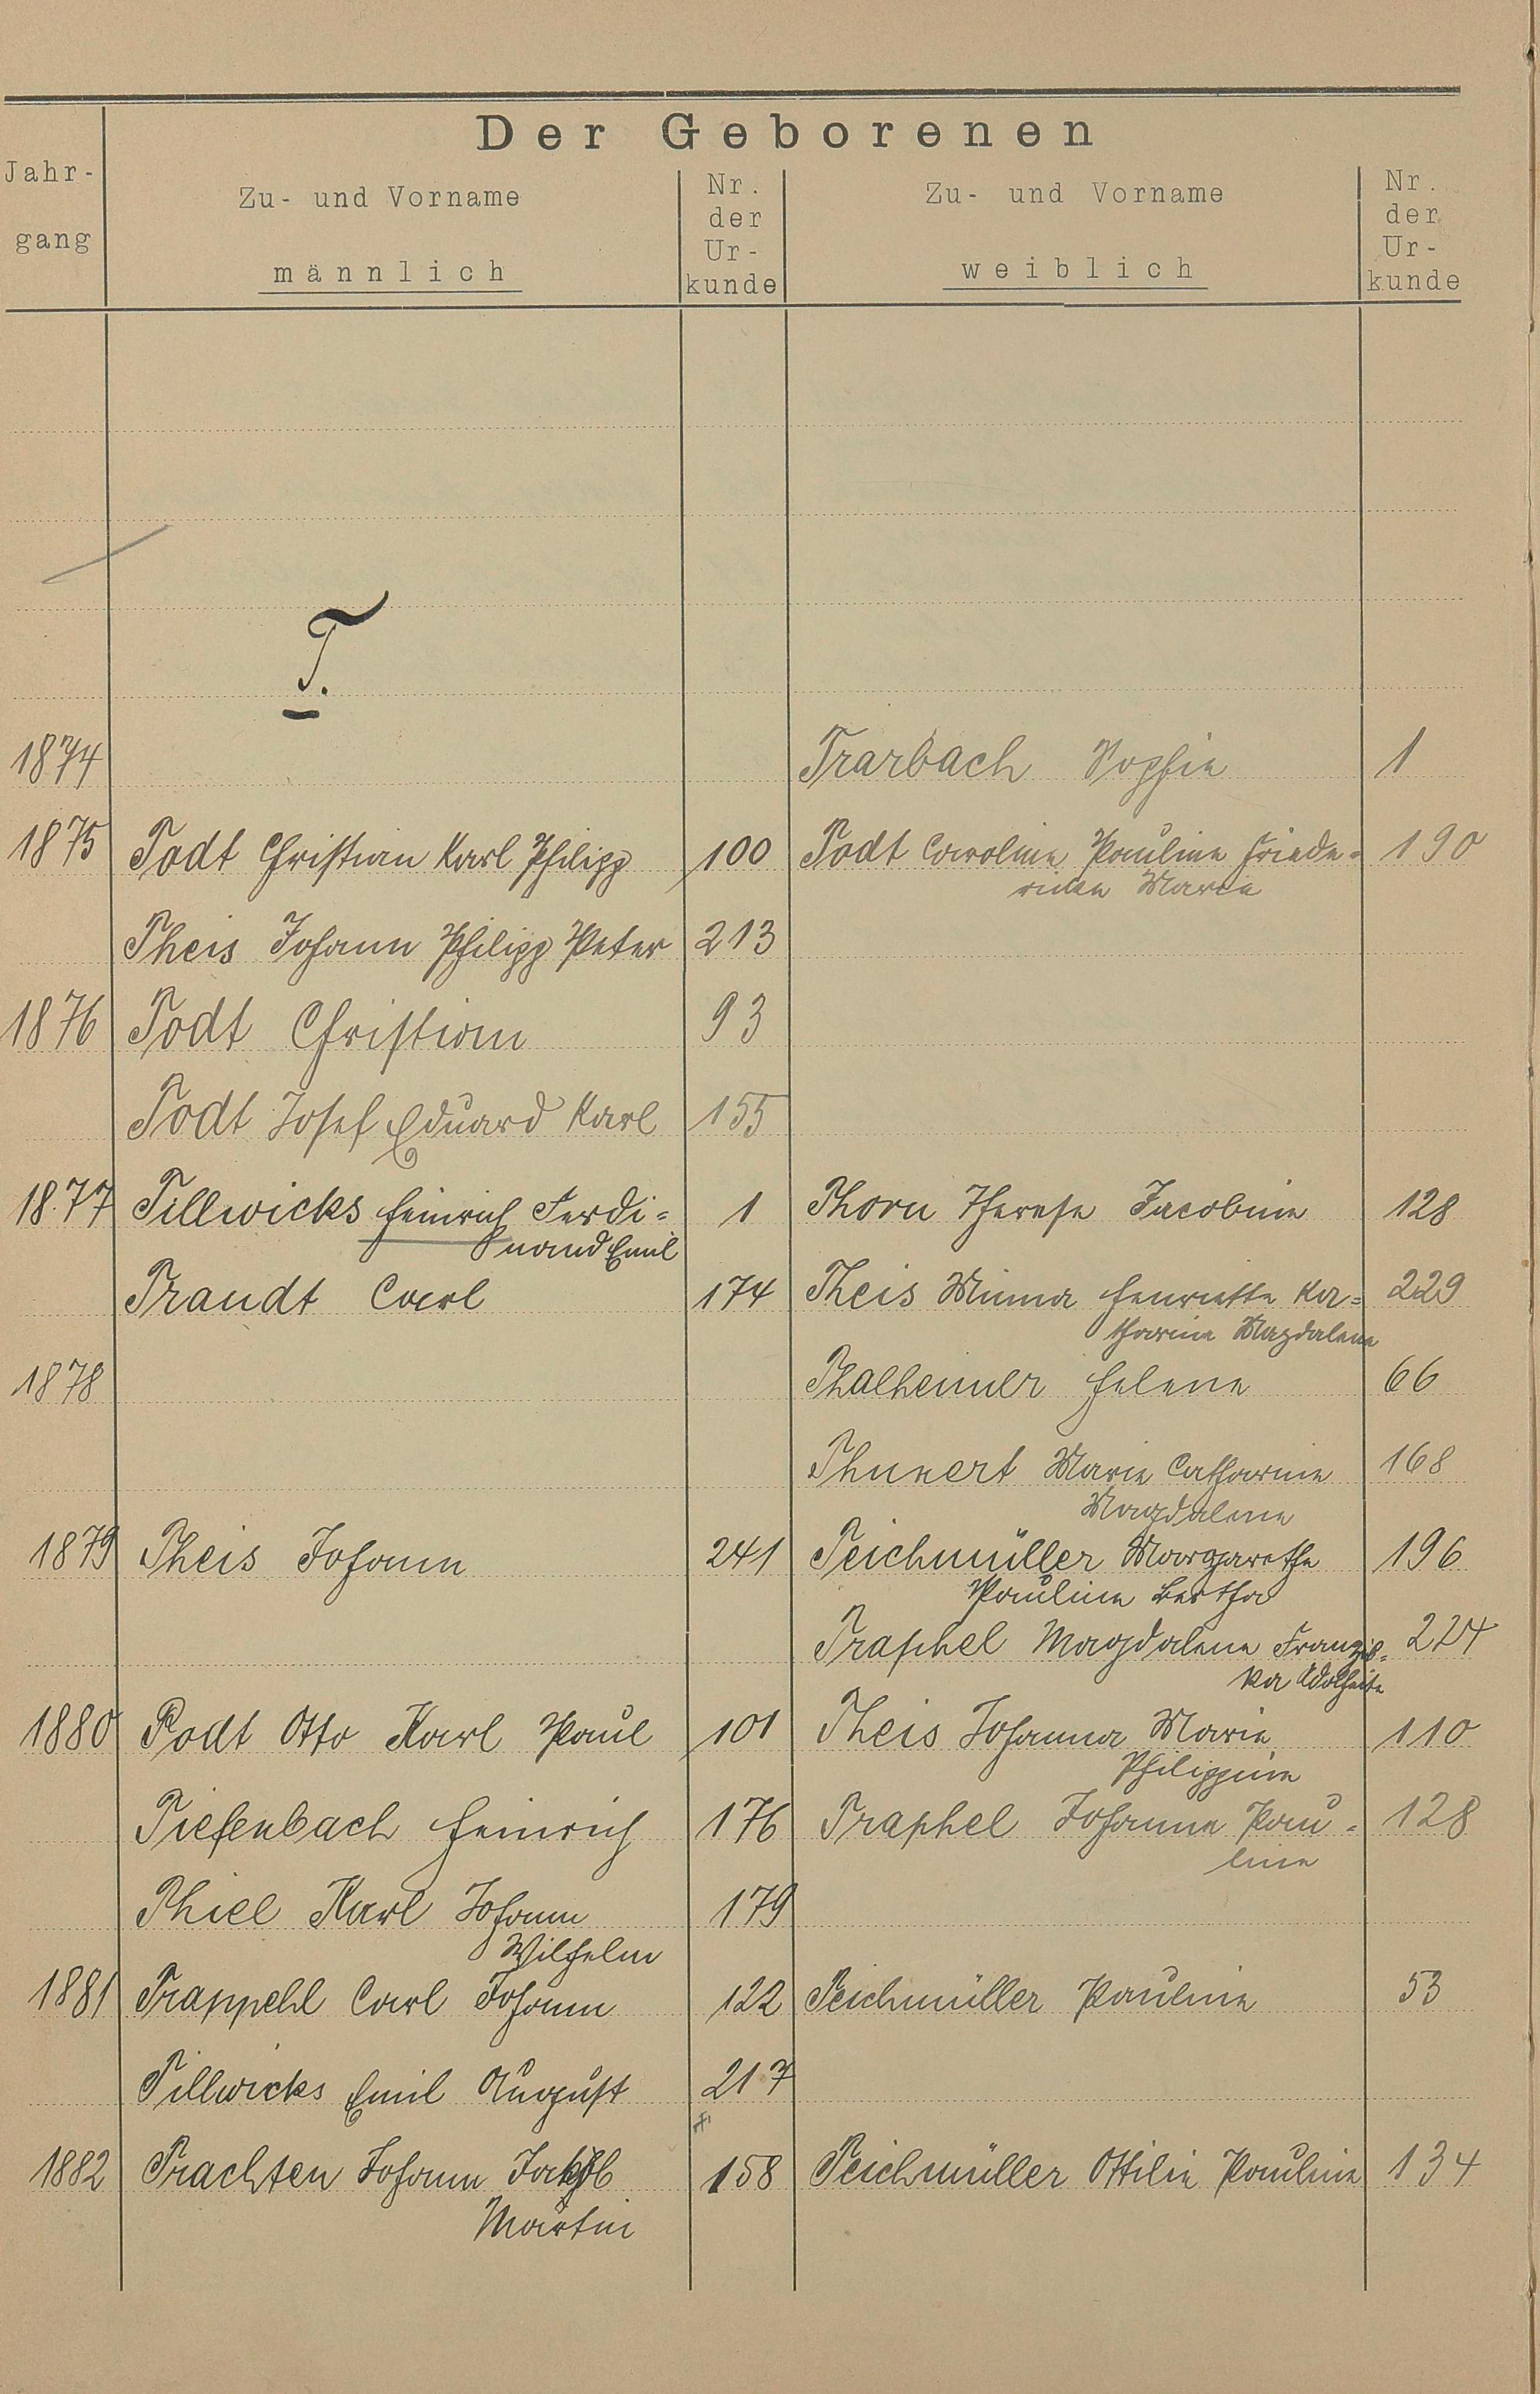 Der Geborenen
Jahr-
gang
Zu- und Vorname
männlich
Nr.
der
Ur-
kunde
Zu- und Vorname
weiblich
Nr.
der
Ur-
kunde
T.
1874 Trarbach Sophie 1
1875 Todt Christian Karl Philipp 100 Todt Caroline Pauline Friede- 190
ricke Marie
Theis Johann Philipp Peter 213
1876 Todt Christian 93
Todt Josef Eduard Karl 155
1877 Tillwicks Heinrich Ferdi= 1 Thorn Therese Jacobine 128
nand Emil
Trandt Carl 174 Theis Minna Henriette Ka= 229
tharine Magdalene
1878 Thalheimer Helene 66
Thunert Marie Catharine 168
Magdalene
1879 Theis Johann 241 Teichmüller Margarethe 196
Pauline Bertha
Traphel Magdalene Franzis= 224
ka Adolheite
1880 Todt Otto Karl Paul 101 Theis Johanna Marie 110
Philippine
Tiefenbach Heinrich 176 Traphel Johanne Pau- 128
line
Thiel Karl Johann 179
Wilhelm
1881 Trappehl Carl Johann 122 Teichmüller Pauline 53
Tillwicks Emil August 217
1882 Trachten Johann Jakob 158 Teichmüller Ottilie Pauline 134
Martin